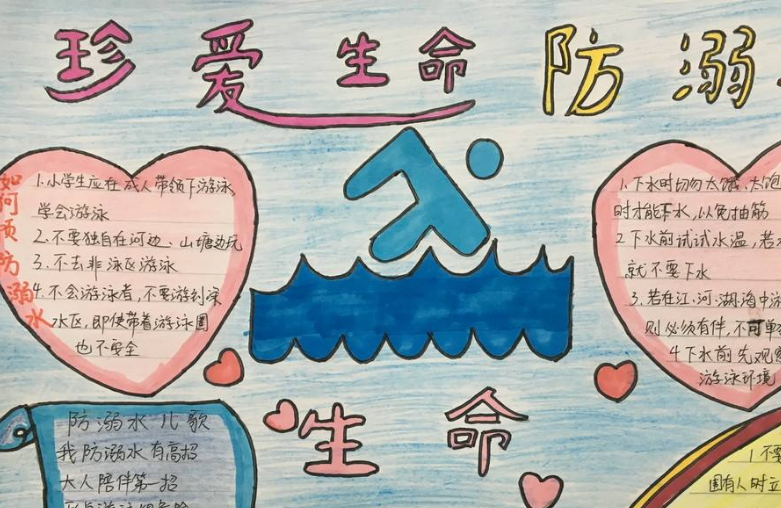 珍爱生命 防溺
如何预防溺水
1.小学生应在成人带领下游泳,
学会游泳
2.不要独自在河边、山塘边玩
3.不去非泳区游泳
4.不会游泳者,不要游到深
水区,即使带着游泳圈
也不要全
1.下水时切勿太饿、太饱
时才能下水,以免抽筋
2下水前试试水温,若
就不要下水
3.若在江·河·湖·海中游
则必须有伴,不可单
4下水前先观
游泳环境
生命
防溺水儿歌
我防溺水有高招
大人陪伴第一招
1不要
围有人时立